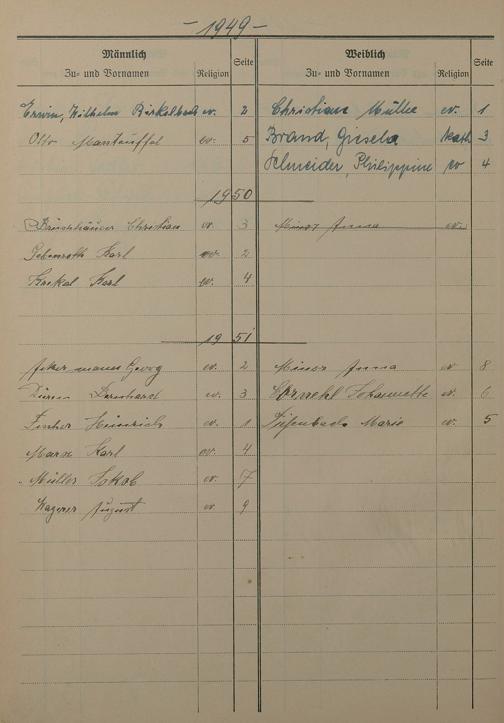 - 1949 -
Männlich Weiblich
Zu- und Vornamen Religion Seite Zu- und Vornamen Religion Seite
Erwin, Wilhelm Birkelbach ev. 2 Christiane Müller ev. 1
Otto Manteuffel ev. 5 Brand, Giesela kath 3
Schneider, Philippine ev 4
1950
Christian ev. 3 Minor Anna ev.
Gebenroth Karl ev. 2
Krekel Karl ev. 4
1951
Ackermann Georg ev. 2 Minor Anna ev 8
Bernhard ev. 3 Johannette ev. 6
Heinrich ev. 1 Marie ev. 5
Marx Karl ev. 4
Müller Jakob ev. 7
Wagner August ev 9